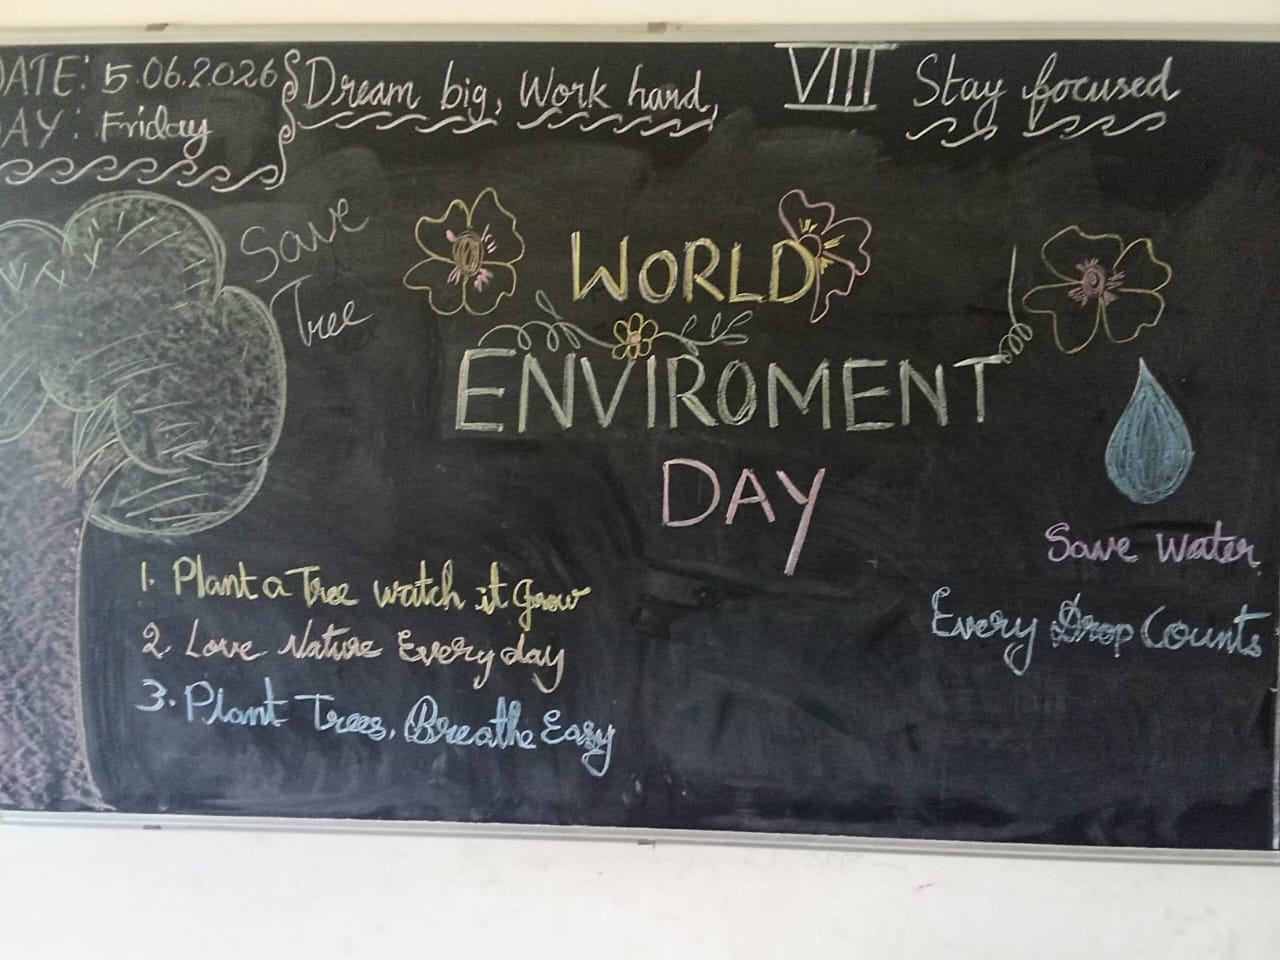 DATE: 5.06.2026
DAY: Friday
Dream big, Work hard,
VIII
Stay focused
Save
Tree
WORLD
ENVIROMENT
DAY
1. Plant a Tree watch it Grow
2. Love Nature Every day
3. Plant Trees, Breathe Easy
Save Water
Every Drop Counts